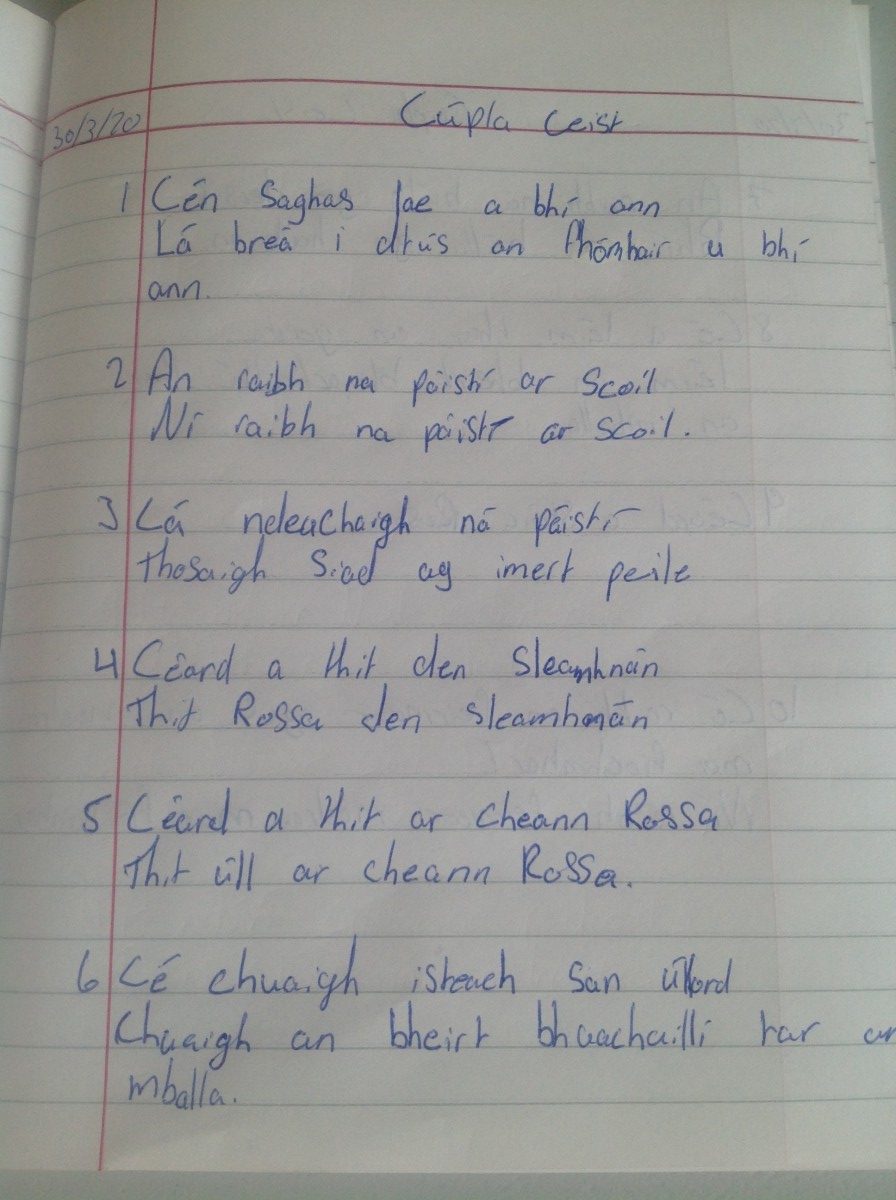 30/3/20 Cúpla Ceist
1 Cén Saghas lae a bhí ann
Lá breá i dtús an fhómhair u bhí
ann.
2 An raibh na páistí ar Scoil
Ní raibh na páistí ar Scoil.
3 Cá ndeachaigh ná páistí
thosaigh Siad ag imert peile
4 Céard a thit den Sleamhnán
Thit Rossa den sleamhnán
5 Céard a thit ar cheann Rossa
Thit úll ar cheann Rossa.
6 Cé chuaigh isteach San úllord
Chuaigh an bheirt bhuachaillí tar an
mballa.